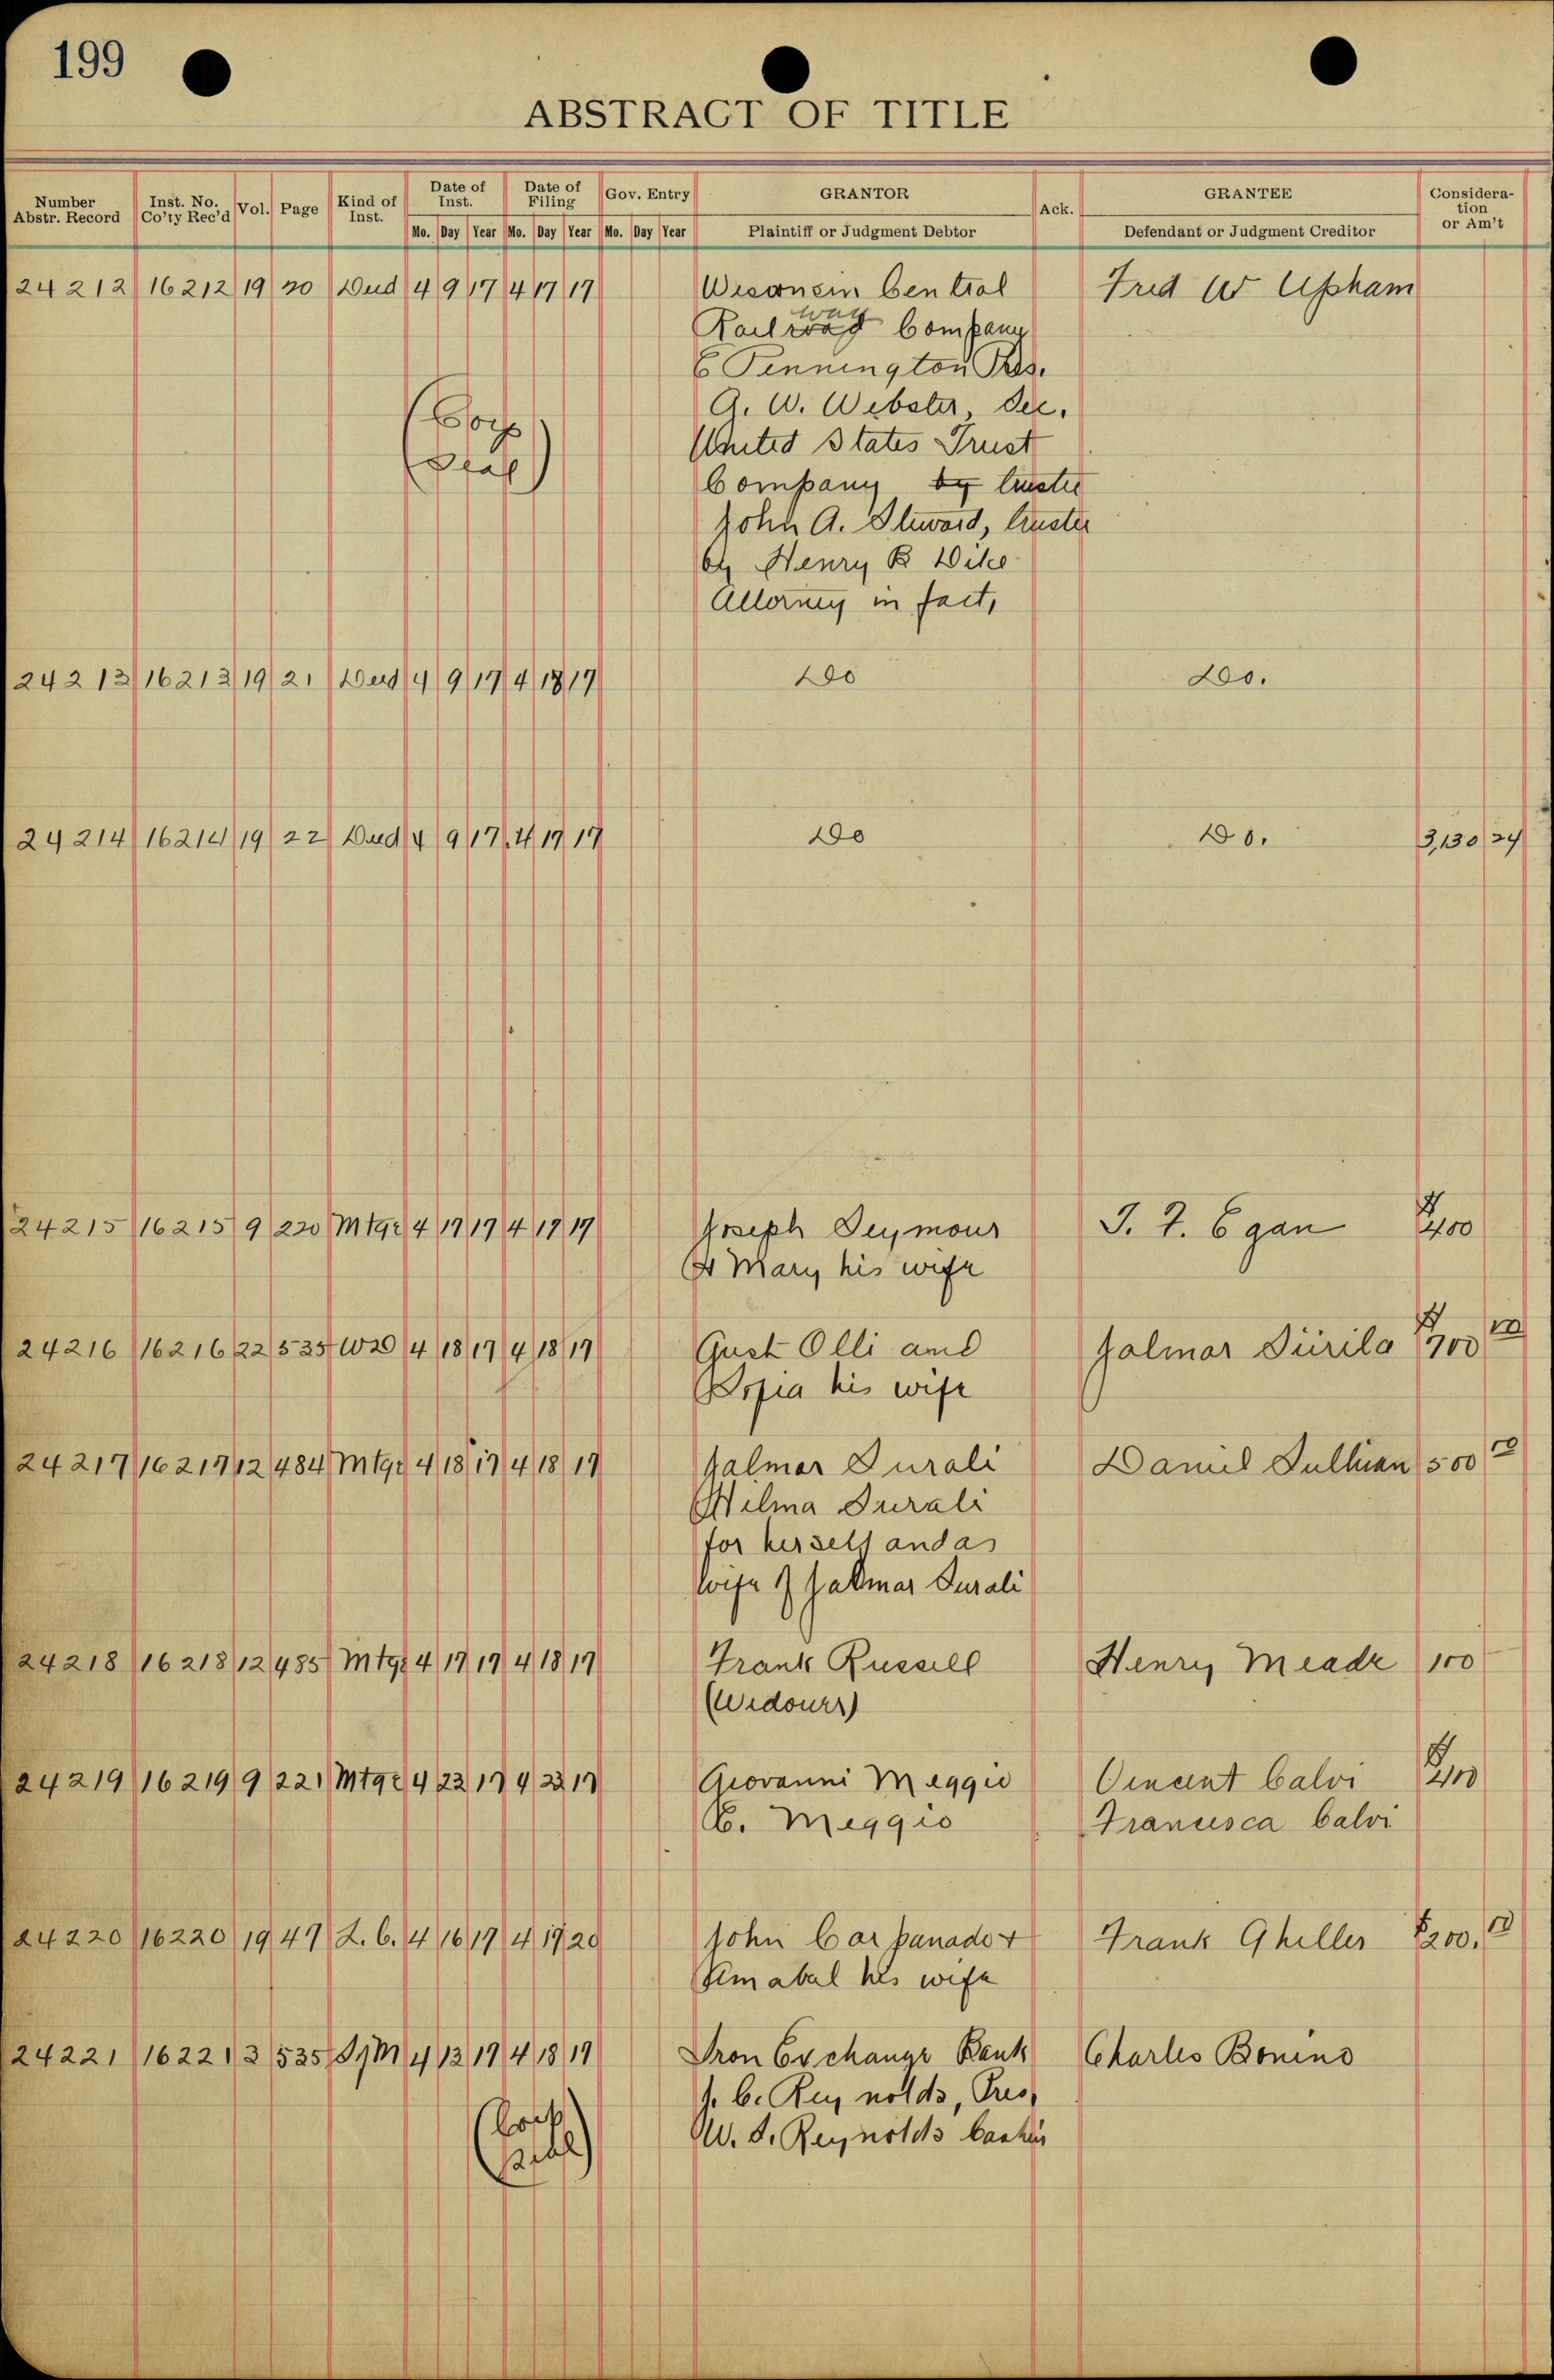 199
ABSTRACT OF TITLE
Number Abstr. Record | Inst. No. Co'ty Rec'd | Vol. | Page | Kind of Inst. | Date of Inst. | Date of Filing | Gov. Entry | GRANTOR | Ack. | GRANTEE | Consideration or Am't
Mo. Day Year Mo. Day Year Mo. Day Year Plaintiff or Judgment Debtor Defendant or Judgment Creditor
24212 16212 19 20 Deed 4 9 17 4 17 17 Wisconsin Central Fred W Upham
Railway Company
E Pennington Pres.
G. W. Webster, Sec.
(Corp United States Trust
Seal) Company by trustee
John A. Steward, trustee
by Henry B Wike
Attorney in fact,
24213 16213 19 21 Deed 4 9 17 4 18 17 Do Do.
24214 16214 19 22 Deed 4 9 17 4 17 17 Do Do. 3,130 24
24215 16215 9 220 Mtge 4 17 17 4 17 17 Joseph Seymour J. F. Egan $400
& Mary his wife
24216 16216 22 535 WD 4 18 17 4 18 17 Gust Olli and Jalmar Siirila $700 00
Sofia his wife
24217 16217 12 484 Mtge 4 18 17 4 18 17 Jalmar Surali Daniel Sullivan 500 00
Hilma Surali
for herself and as
wife of Jalmar Surali
24218 16218 12 485 Mtge 4 17 17 4 18 17 Frank Russell Henry Meade 100
(Widower)
24219 16219 9 221 Mtge 4 23 17 4 23 17 Giovanni Meggio Vincent Calvi
C. Meggio Francisca Calvi
24220 16220 19 47 L. C. 4 16 17 4 17 20 John Carpanado + Frank Ghiller $200.00
Amabal his wife
24221 16221 3 535 4 13 17 4 18 17 Iron Exchange Bank Charles Bonino
J. C. Reynolds, Pres,
(Corp W. S. Reynolds Cashier
Seal)